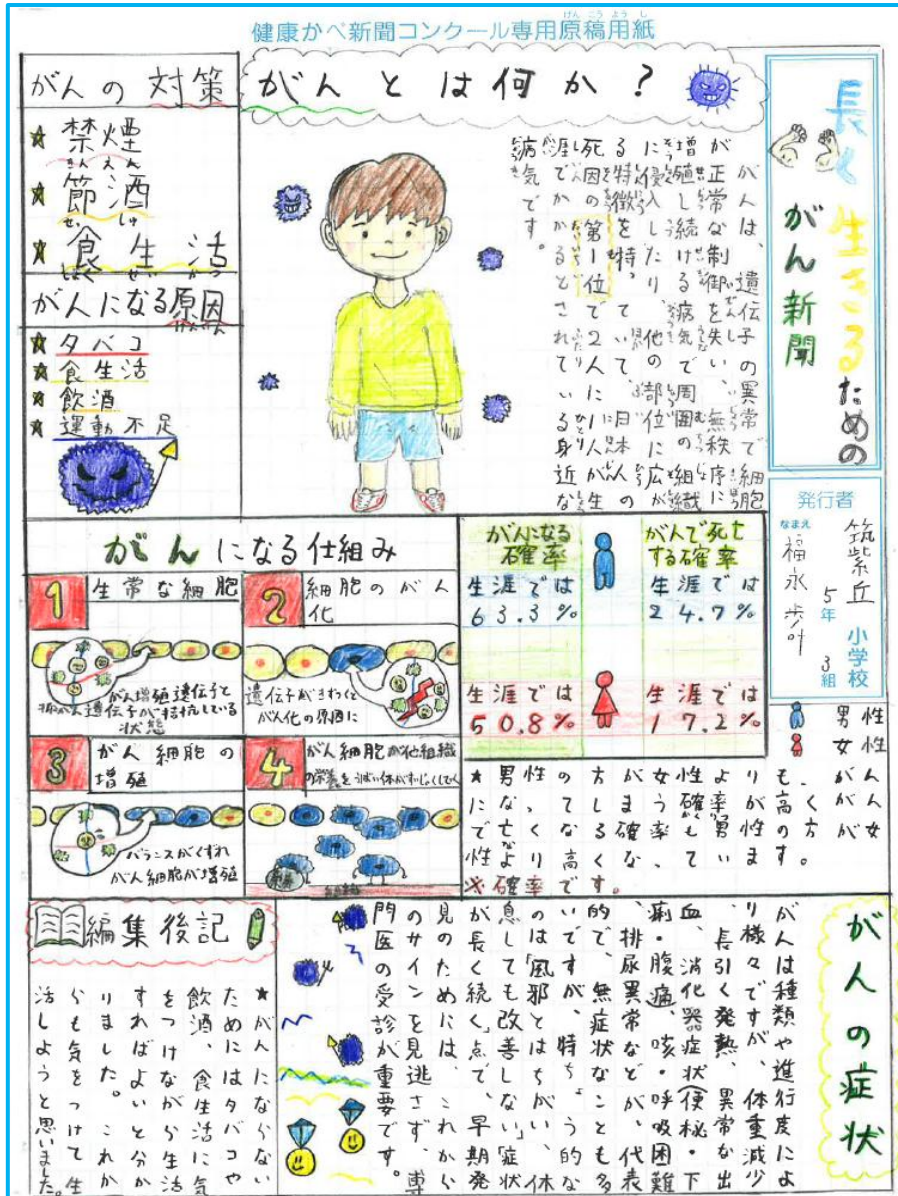 健康かべ新聞コンクール専用原稿用紙
長く生きるための
がん新聞
発行者
筑紫丘小学校
5年3組
なまえ
福永歩叶
がんとは何か?
がんは、遺伝子の異常で細胞
が正常な制御を失い、無秩序に
増殖し続ける病気で周囲の組織
に侵入したり、他の部位に広が
る特徴を持っていて、日本人の
死因の第1位で2人に1人が生
涯でかかるとされている身近な
病気です。
がんの対策
★禁煙
★節酒
★食生活
がんになる原因
★タバコ
★食生活
★飲酒
★運動不足
がんになる仕組み
1 生常な細胞
がん増殖遺伝子と
遺伝子が拮抗している
状態
2 細胞のがん
化
遺伝子がきずつくと
がん化の原因に
3 がん細胞の
増殖
バランスがくずれ
がん細胞が増殖
4 がん細胞が他組織
がんになる
確率
がんで死亡
する確率
生涯では
63.3%
生涯では
24.7%
生涯では
50.8%
生涯では
17.2%
男性
女性
※確率です。
がんの症状
がんは種類や進行度によ
り様々ですが、体重減少
、長引く発熱、異常な出
血、消化器症状(便秘・下
痢・腹痛、咳・呼吸困難
、排尿異常などが、代表
的で、無症状なことも多
いですが、特ちょう的な
のは「風邪とはちがい、休
息しても改善しない」「症状
が長く続く」点で、早期発
見のためには、これから
のサインを見逃さず、専
門医の受診が重要です。
編集後記
★がんにならない
ためにはタバコや
飲酒、食生活に気
をつけながら生活
すればよいと分か
りました。これか
らも気をつけて生
活しようと思いました。